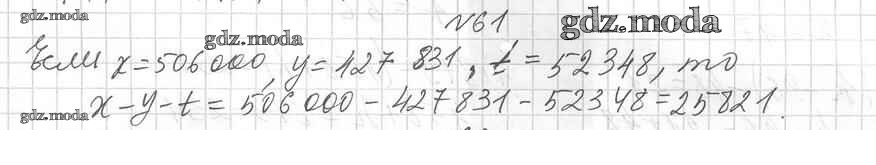 №61
gdz.moda
gdz.moda
gdz.moda
Если x=506 000, y=427 831, t=52348, то
gdz.moda
x-y-t = 506 000 - 427 831 - 52348=25821.